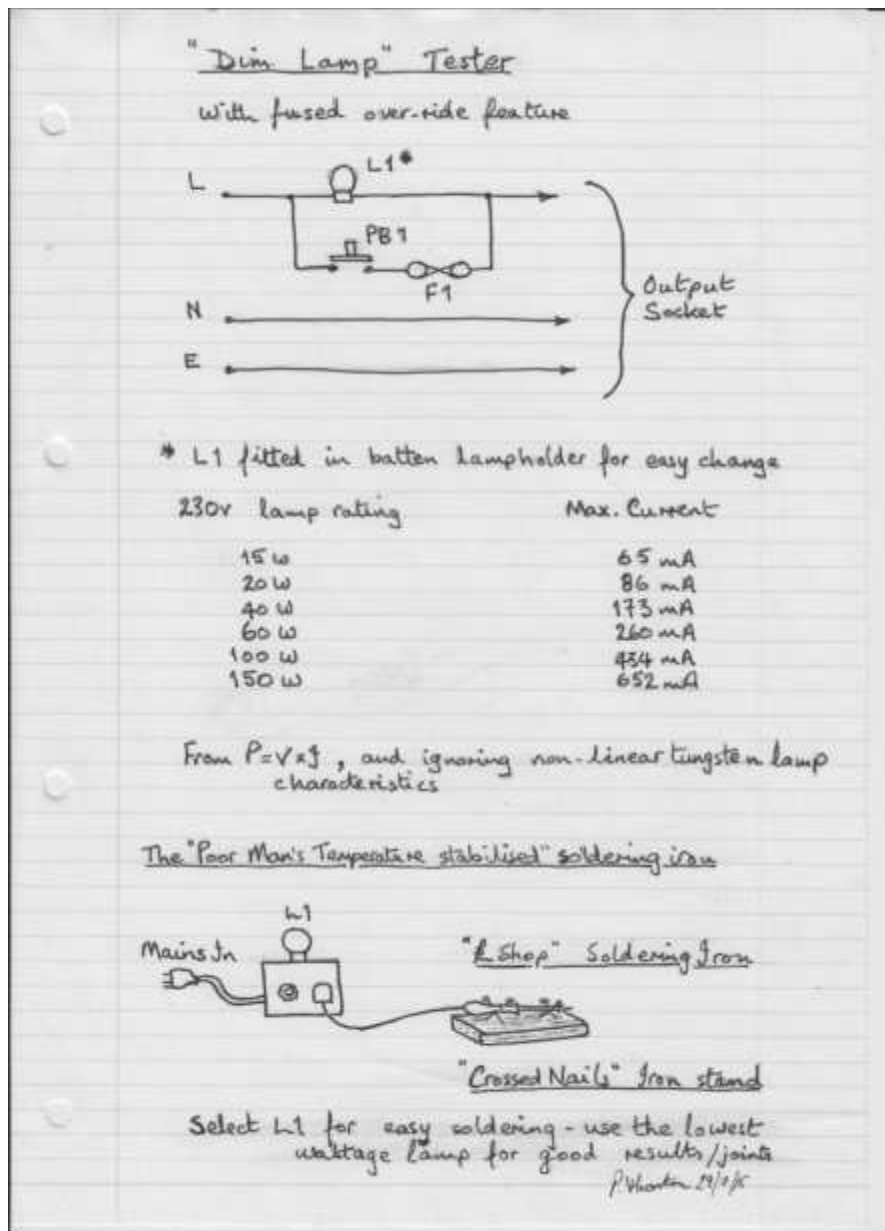 "Dim Lamp" Tester
With fused over-ride feature
L1*
L
PB1
F1
N
Output
Socket
E
* L1 fitted in batten lampholder for easy change
230v lamp rating Max. Current
15 W 65 mA
20 W 86 mA
40 W 173 mA
60 W 260 mA
100 W 434 mA
150 W 652 mA
From P=V×I, and ignoring non-linear tungsten lamp
characteristics
The "Poor Man's Temperature stabilised" soldering iron
L1
Mains In
"£ Shop" Soldering Iron
"Crossed Nails" Iron stand
Select L1 for easy soldering - use the lowest
wattage lamp for good results/joints